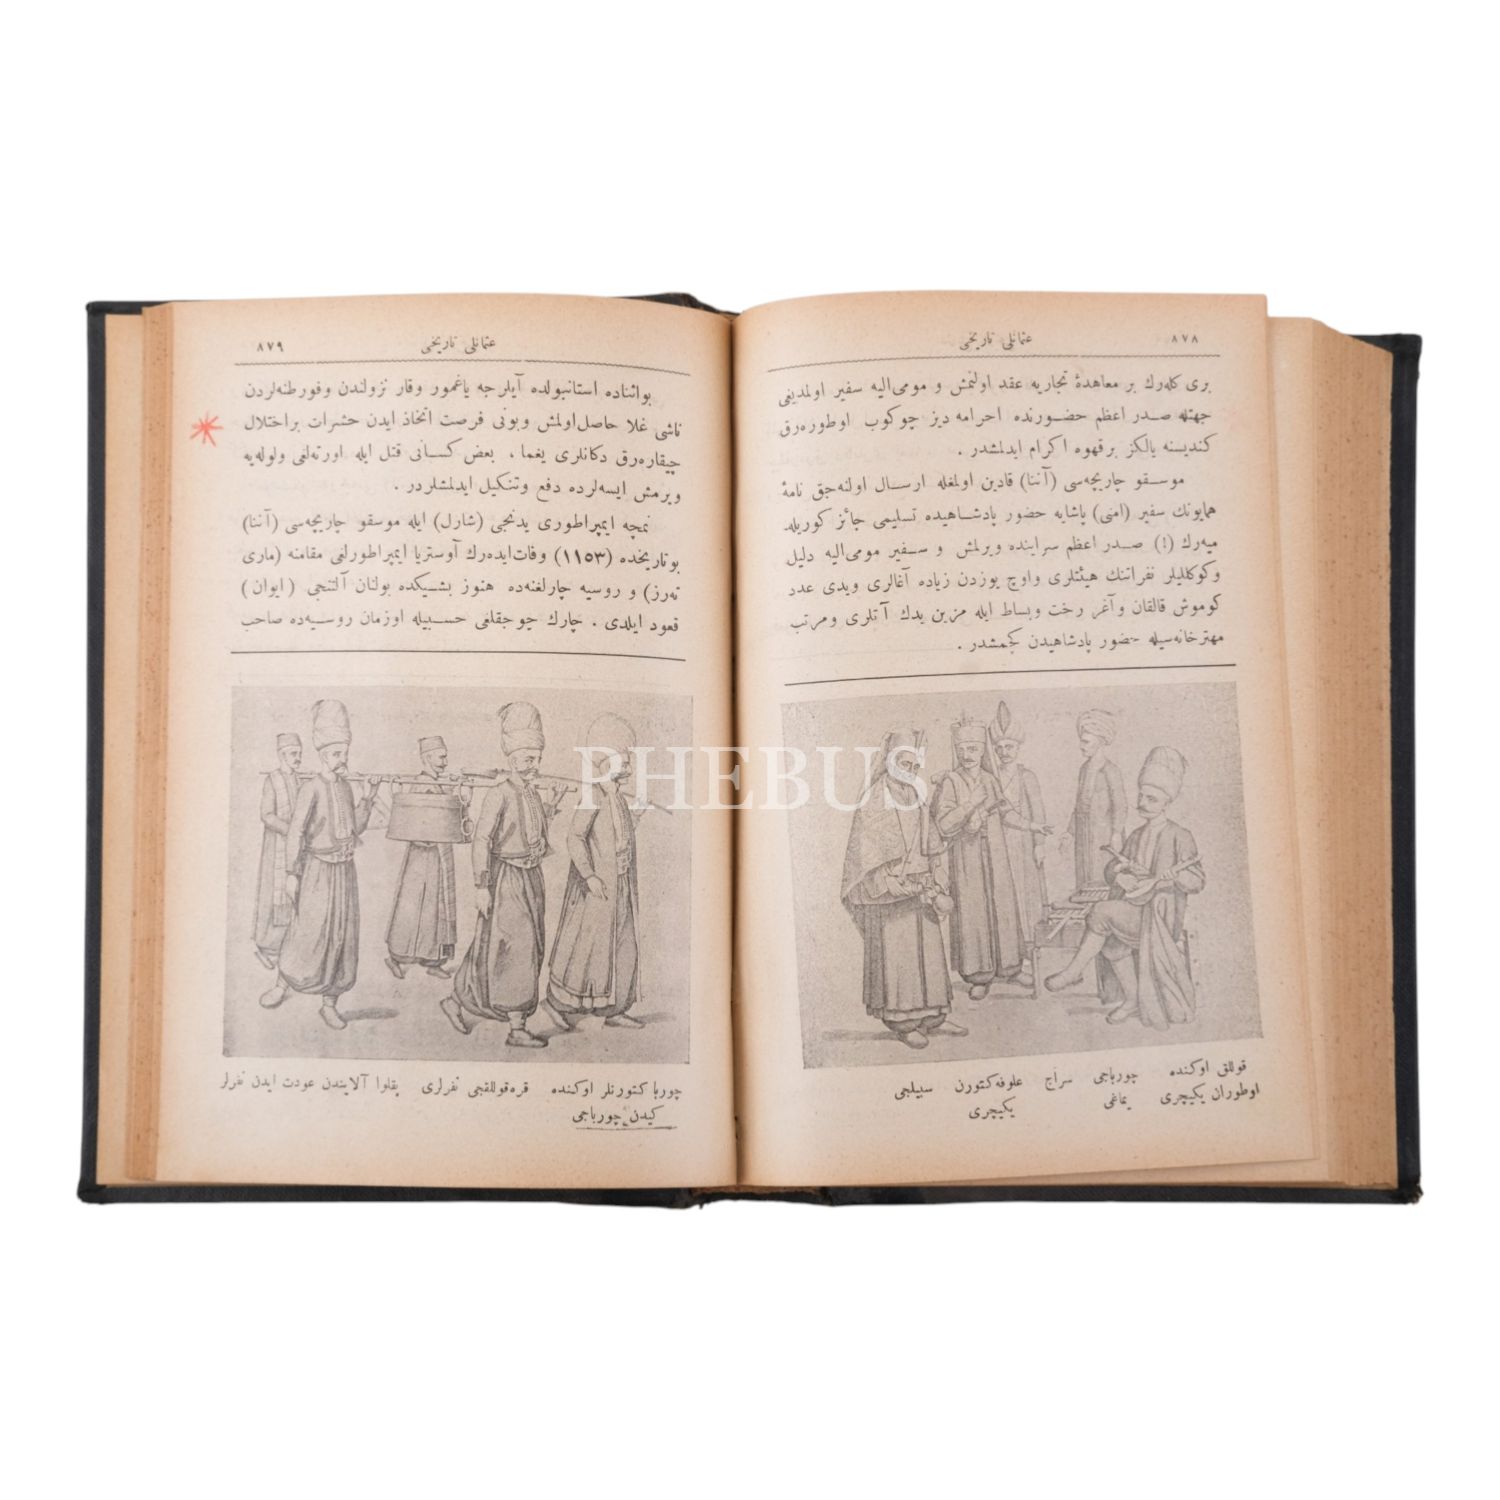 ٨٧٨
عثمانلی تاریخی
بری کله‌رك بر معاهدهٔ تجاریه عقد اولنمش و مومی‌الیه سفیر اولمدیغی
جهتله صدر اعظم حضورنده احرامه دیز چوکوب اوطوره‌رق
کندیسنه یالکز برقهوه اکرام ایدلمشدر .
موسقو چاریچه‌سی (آننا) قادین اولمغله ارسال اولنه‌جق نامهٔ
همایونك سفیر (امنی) پاشایه حضور پادشاهیده تسلیمی جائز کوریله‌
میه‌رك (!) صدر اعظم سراینده ویرلمش و سفیر مومی‌الیه دلیل
وکوکللیلر نفراتنك هیئتلری واوچ یوزدن زیاده آغالری ویدی عدد
کوموش قالقان وآغر رخت وبساط ایله مزین یدك آتلری ومرتب
مهترخانه‌سیله حضور پادشاهیدن کچمشدر .
قوللق اوکنده چورباجی سراج علوفه‌کتورن سبیلجی
اوطوران یکیچری یماغی یکیچری
٨٧٩
عثمانلی تاریخی
بواثناده استانبولده آیلرجه یاغمور وقار نزولندن وفورطنه‌لردن
ناشی غلا حاصل‌اولمش وبونی فرصت اتخاذ ایدن حشرات براختلال
چیقاره‌رق دکانلری یغما ، بعض کسانی قتل ایله اورته‌لغی ولوله‌یه
ویرمش ایسه‌لرده دفع وتنکیل ایدلمشلردر .
نمچه ایمپراطوری یدنجی (شارل) ایله موسقو چاریچه‌سی (آننا)
بوتاریخده (١١٥٣) وفات‌ایده‌رك آوستریا ایمپراطورلغی مقامنه (ماری
ته‌رز) و روسیه چارلغنه‌ده هنوز بشیکده بولنان آلتنجی (ایوان)
قعود ایلدی . چارك چوجقلغی حسبیله اوزمان روسیه‌ده صاحب
چورباکتورنلر اوکنده قره‌قوللقجی نفرلری پقلوا آلایندن عودت ایدن نفرلر
کیدن چورباجی
PHEBUS